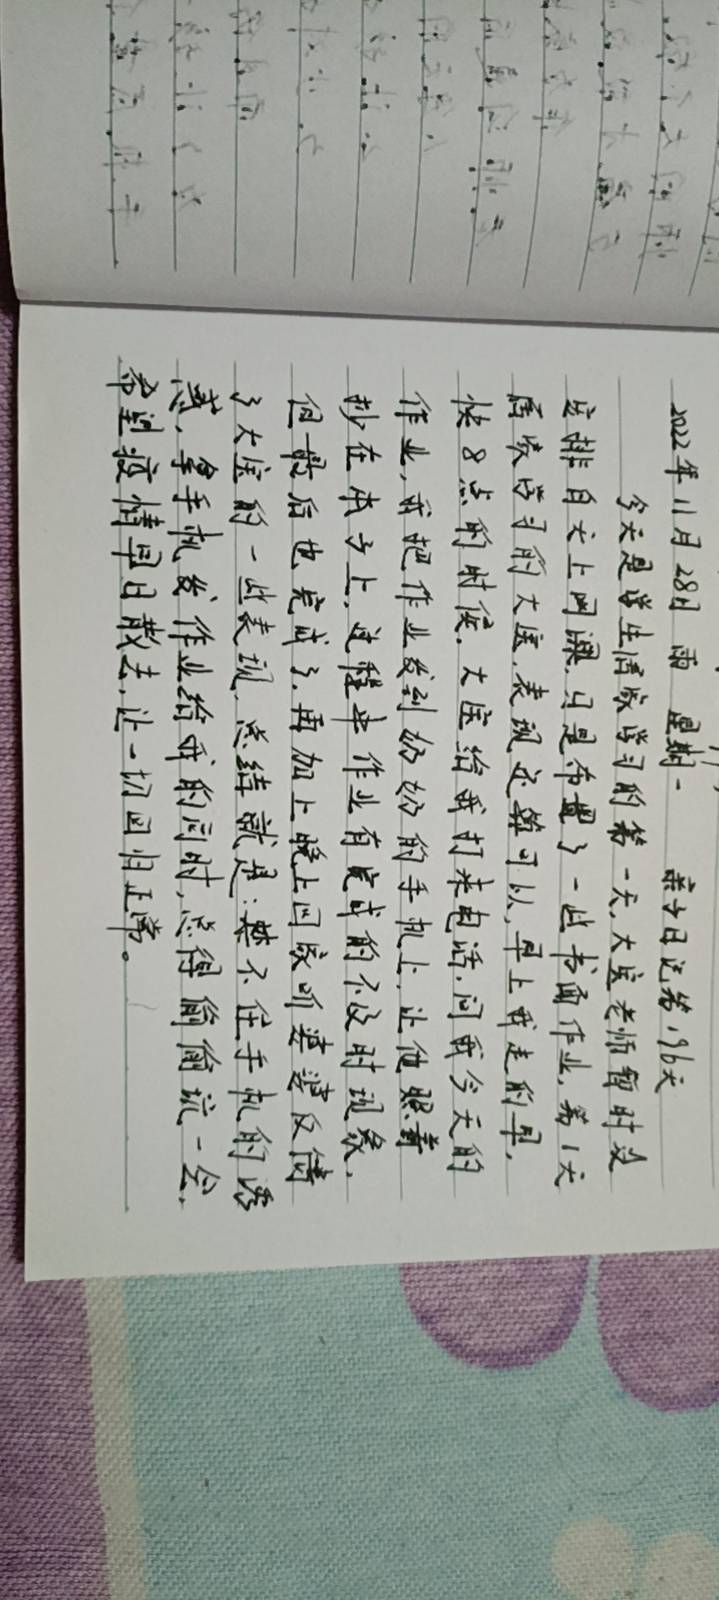 2022年11月28日 雨 星期一 亲子日记第196天
今天是学生居家学习的第一天,大宝老师暂时没
安排白天上网课,只是布置了一些书面作业,第1天
居家学习的大宝,表现还算可以,早上我走的早,
快8点的时候,大宝给我打来电话,问我今天的
作业,我把作业发到奶奶的手机上,让他照着
抄在本子上,过程中作业有完成的不及时现象,
但最后也完成了,再加上晚上回家听婆婆反馈
了大宝的一些表现,总结就是:禁不住手机的诱
惑,拿手机发作业给我的同时,总得偷偷玩一会,
希望疫情早日散去,让一切回归正常。